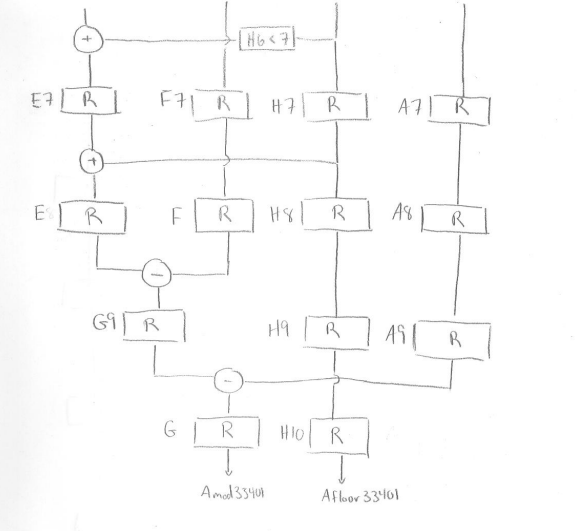 + H6<7
E7 R F7 R H7 R A7 R
+
E R F R H8 R A8 R
−
G9 R H9 R A9 R
−
G R H10 R
Amod33401 Afloor33401